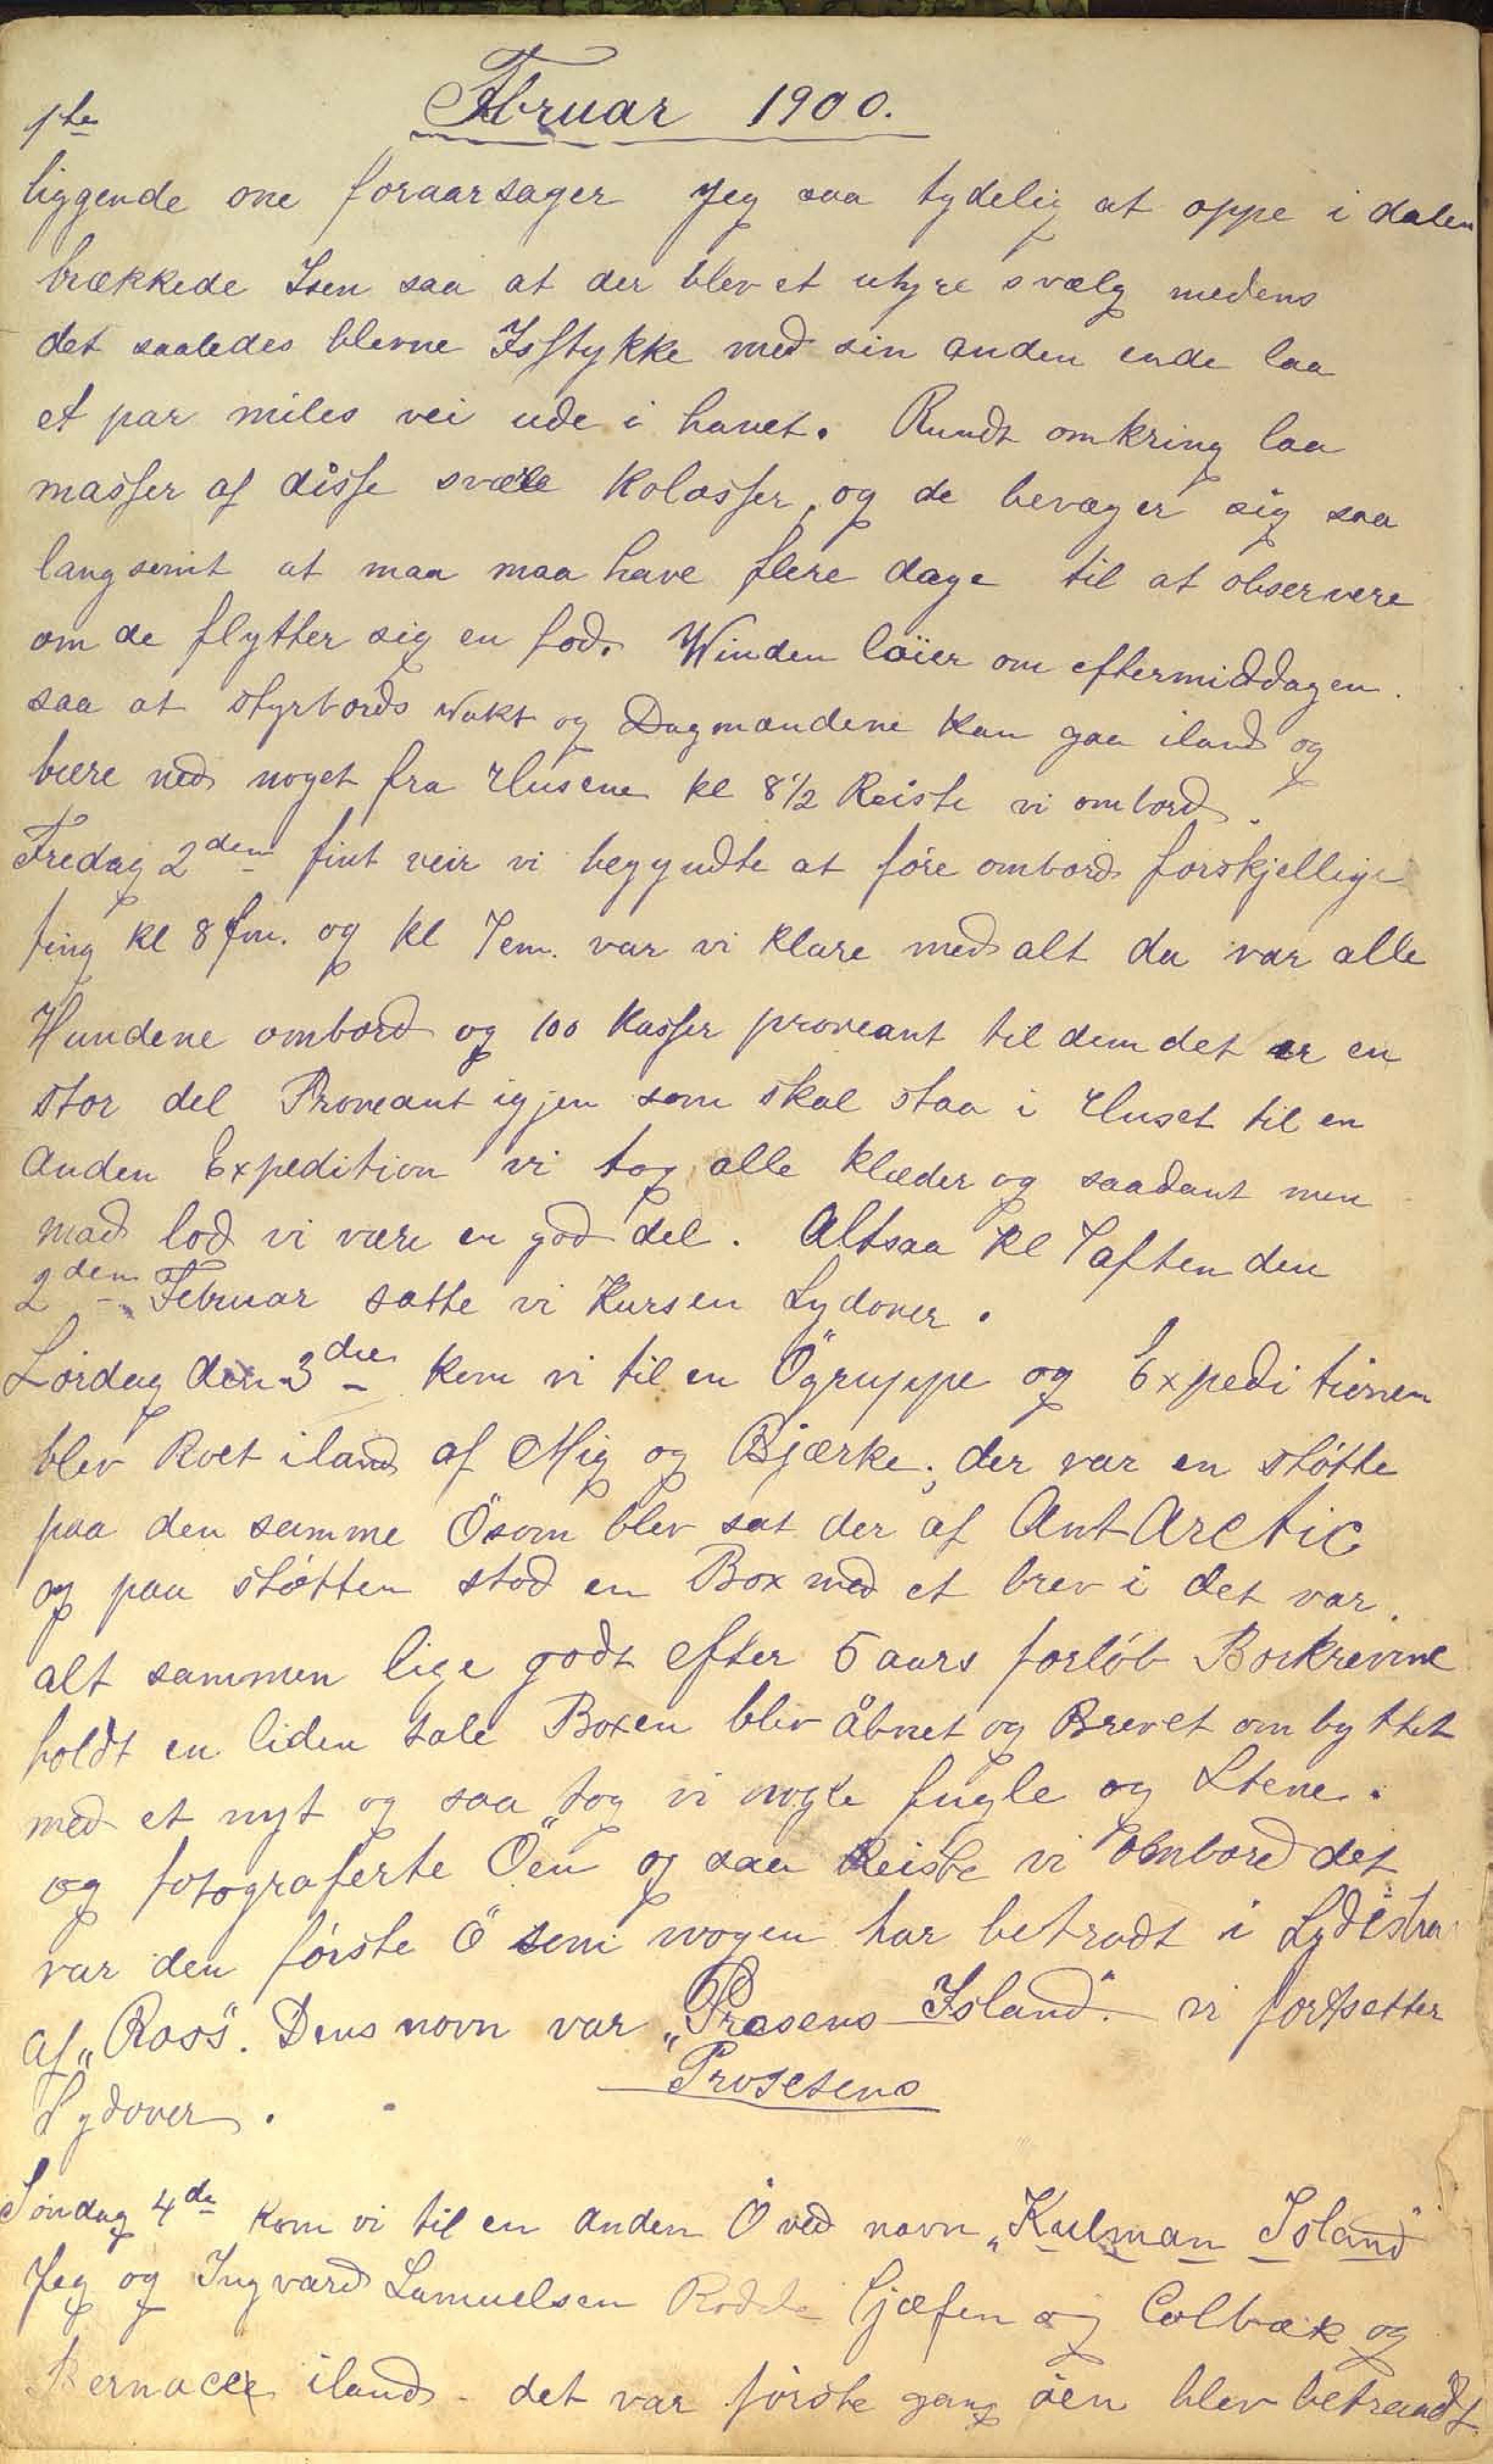 Februar 1900.
1ste
liggende one foraarsager Jeg saa tydelig at oppe i dalen
brækkede Isen saa at der blev et uhyre svælg medens
det saaledes blevne Isstykke med sin anden ende laa
et par miles vei ude i havet. Rundt omkring laa
masser af disse svære Kolosser, og de bevæger sig saa
langsomt at maa maa have flere dage til at observere
om de flytter sig en fod. Winden løier om eftermiddagen.
saa at styrbords vakt og Dagmændene kan gaa iland og
bære ned noget fra Husene kl 8 1/2 Reiste vi ombord.
Fredag 2den fint veir vi begyndte at føre ombord forskjellige
ting kl 8 fm. og kl 7 em. var vi klare med alt da var alle
Hundene ombord og 100 kasser proveant til dem det er en
stor del Proveant igjen som skal staa i Huset til en
anden Expedition vi tog alle klæder og saadant men
mad lod vi være en god del. Altsaa kl 7 aften den
2den Februar satte vi Kursen Sydover.
Lørdag den 3die kom vi til en Øgruppe og Expeditionen
blev Roet iland af Mig og Bjærke; der var en støtte
paa den samme Ö som blev sat der af AntArctic
og paa støtten stod en Box med et brev i det var.
alt sammen lige godt efter 5 aars forløb Borkrevine
holdt en liden tale Boxen blev åbnet og Brevet ombyttet
med et nyt og saa tog vi nogle fugle og Stene.
og fotograferte Öen og saa Reiste vi ombord det
var den første Ö som nogen har betradt i Sydistra
af „Ross". Dens navn var „Presens Island". vi fortsetter
Prosesens
Sydover.
Söndag 4de kom vi til en anden Ö ved navn „Kulman Island"
Jeg og Ingvard Samuelsen Rodde Cjæfen og Colbæk og
Bernacce iland - det var første gang øen blev betraadt.